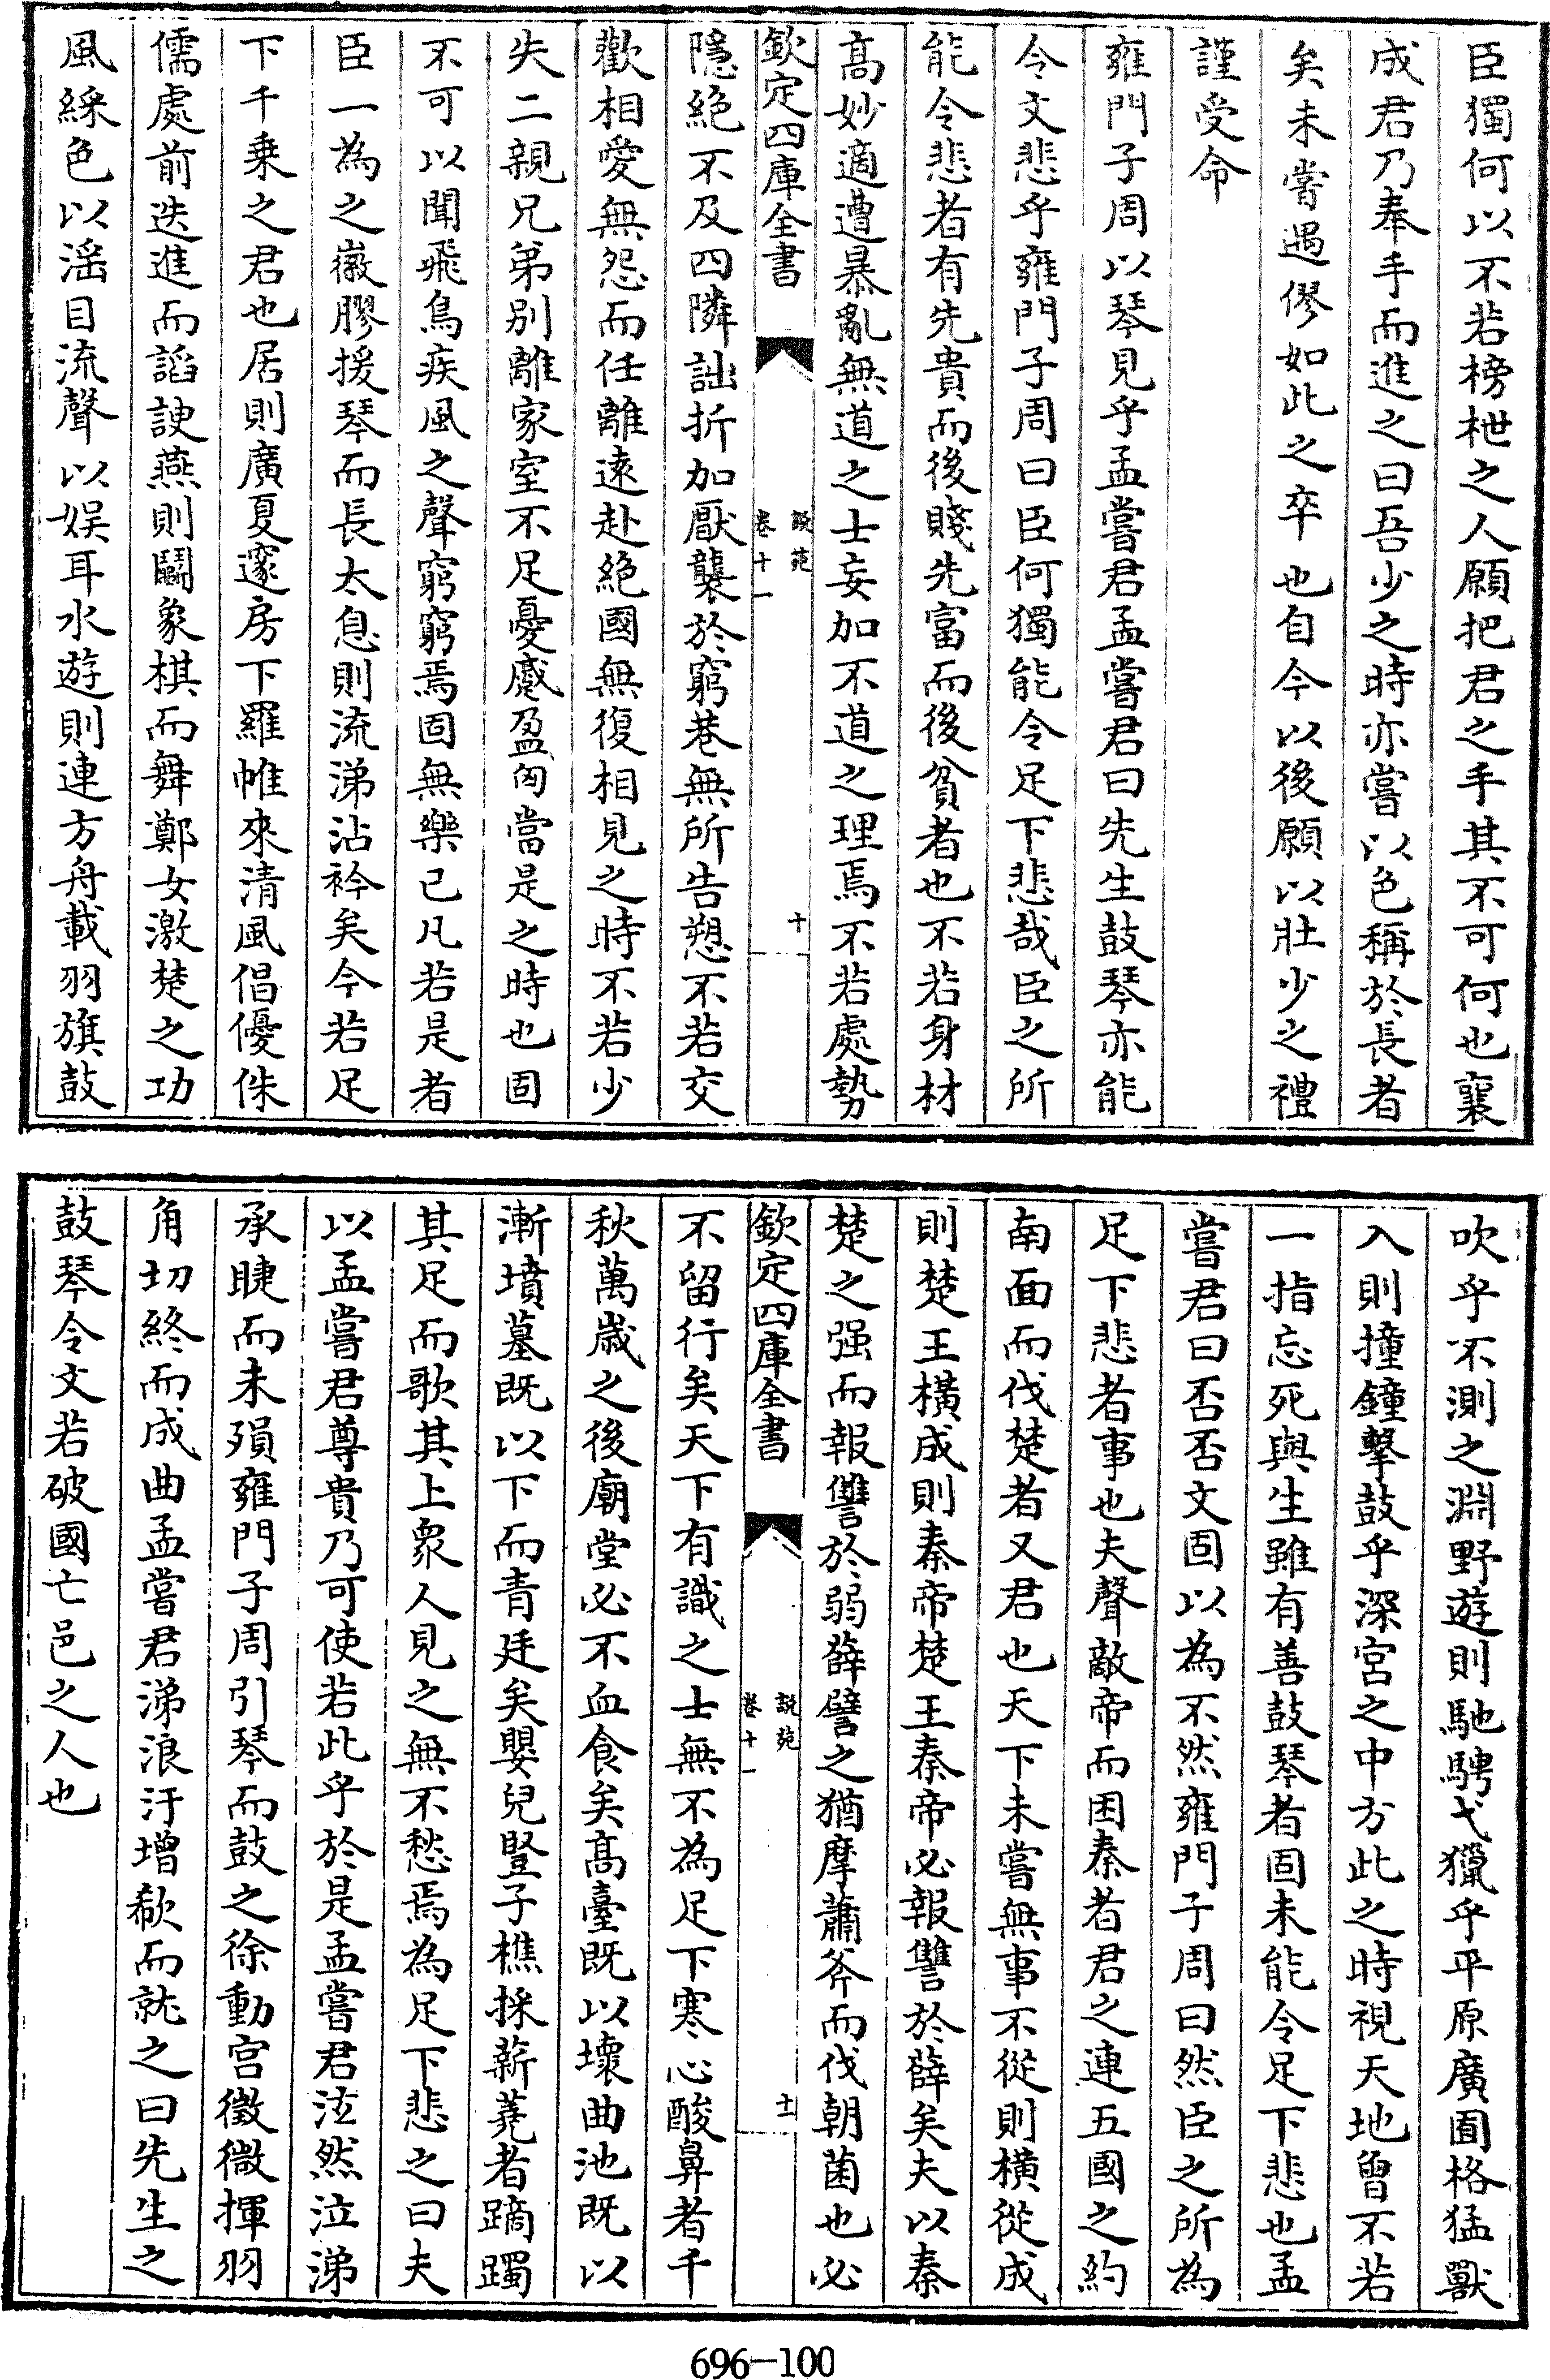 臣獨何以不若榜枻之人願把君之手其不可何也襄
成君乃奉手而進之曰吾少之時亦嘗以色稱於長者
矣未嘗遇僇如此之卒也自今以後願以壯少之禮
謹受命
雍門子周以琴見乎孟嘗君孟嘗君曰先生鼓琴亦能
令文悲乎雍門子周曰臣何獨能令足下悲哉臣之所
能令悲者有先貴而後賤先富而後貧者也不若身材
髙妙適遭暴亂無道之士妄加不道之理焉不若處勢
欽定四庫全書
說苑
卷十一
十
隱絶不及四隣詘折加厭襲於窮巷無所告愬不若交
歡相愛無怨而任離逺赴絶國無復相見之時不若少
失二親兄弟别離家室不足憂慼盈匈當是之時也固
不可以聞飛鳥疾風之聲窮窮焉固無樂已凡若是者
臣一為之徽膠援琴而長太息則流涕沾衿矣今若足
下千乘之君也居則廣夏邃房下羅帷來清風倡優侏
儒處前迭進而諂諛燕則鬭象棋而舞鄭女激楚之功
風綵色以滛目流聲以娱耳水遊則連方舟載羽旗鼓
吹乎不測之淵野遊則馳騁弋獵乎平原廣囿格猛獸
入則撞鐘擊鼓乎深宮之中方此之時視天地曾不若
一指忘死與生雖有善鼓琴者固未能令足下悲也孟
嘗君曰否否文固以為不然雍門子周曰然臣之所為
足下悲者事也夫聲敵帝而困秦者君之連五國之約
南面而伐楚者又君也天下未嘗無事不從則横從成
則楚王横成則秦帝楚王秦帝必報讐於薛矣夫以秦
楚之强而報讐於弱薛譬之猶摩蕭斧而伐朝菌也必
欽定四庫全書
說苑
卷十一
十一
不留行矣天下有識之士無不為足下寒心酸鼻者千
秋萬歲之後廟堂必不血食矣髙臺既以壞曲池既以
漸墳墓既以下而青廷矣嬰兒豎子樵採薪蕘者蹢躅
其足而歌其上衆人見之無不愁焉為足下悲之曰夫
以孟嘗君尊貴乃可使若此乎於是孟嘗君泫然泣涕
承睫而未殞雍門子周引琴而鼓之徐動宮徵微揮羽
角切終而成曲孟嘗君涕浪汗增欷而就之曰先生之
鼓琴令文若破國亡邑之人也
696-100